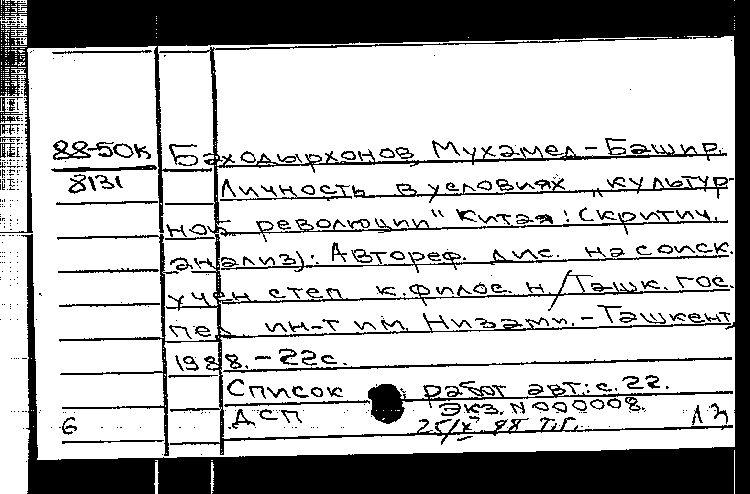 88-50к Баходырхонов, Мухамед-Башир.
8131 Личность в условиях „культур-
ной революции" Китая: (Критич.
анализ): Автореф. дис. на соиск.
учен степ к.филос.н/Ташк. гос.
пед ин-т им. Низами.-Ташкент,
1988.-22с.
Список работ авт.: с.22.
ДСП Экз. N 000008.
6 25/X 88 Т.Г.